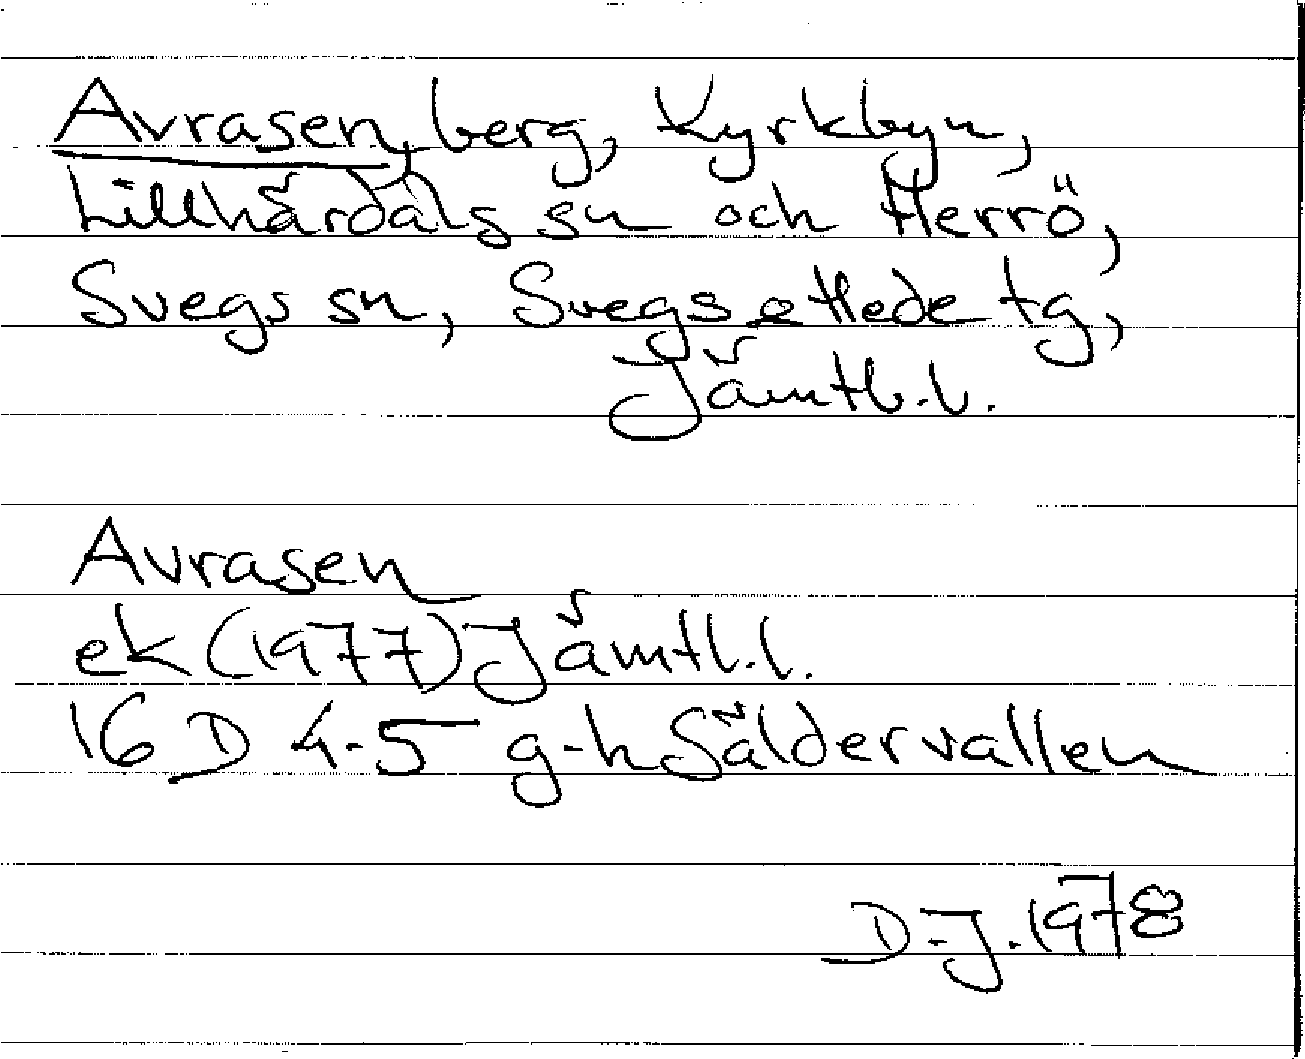 Avrasen, berg, Kyrkbyn,
Lillhärdals sn och Herrö,
Svegs sn, Svegs o Hede tg,
Jämtl.l.
Avrasen
ek (1977) Jämtl.l.
16 D 4-5 g-h Säldervallen
D.J. 1978